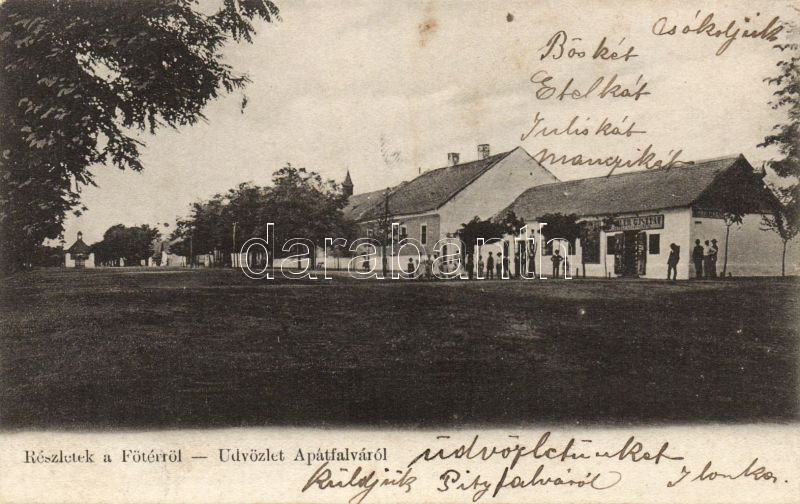 csókoljuk
Böskét
Etelkát
Juliskát
manczikát
GUSZTÁV
darabanth
Részletek a Főtérről — Üdvözlet Apátfalváról
üdvözletünket
küldjük Pityfalváról Ilonka.